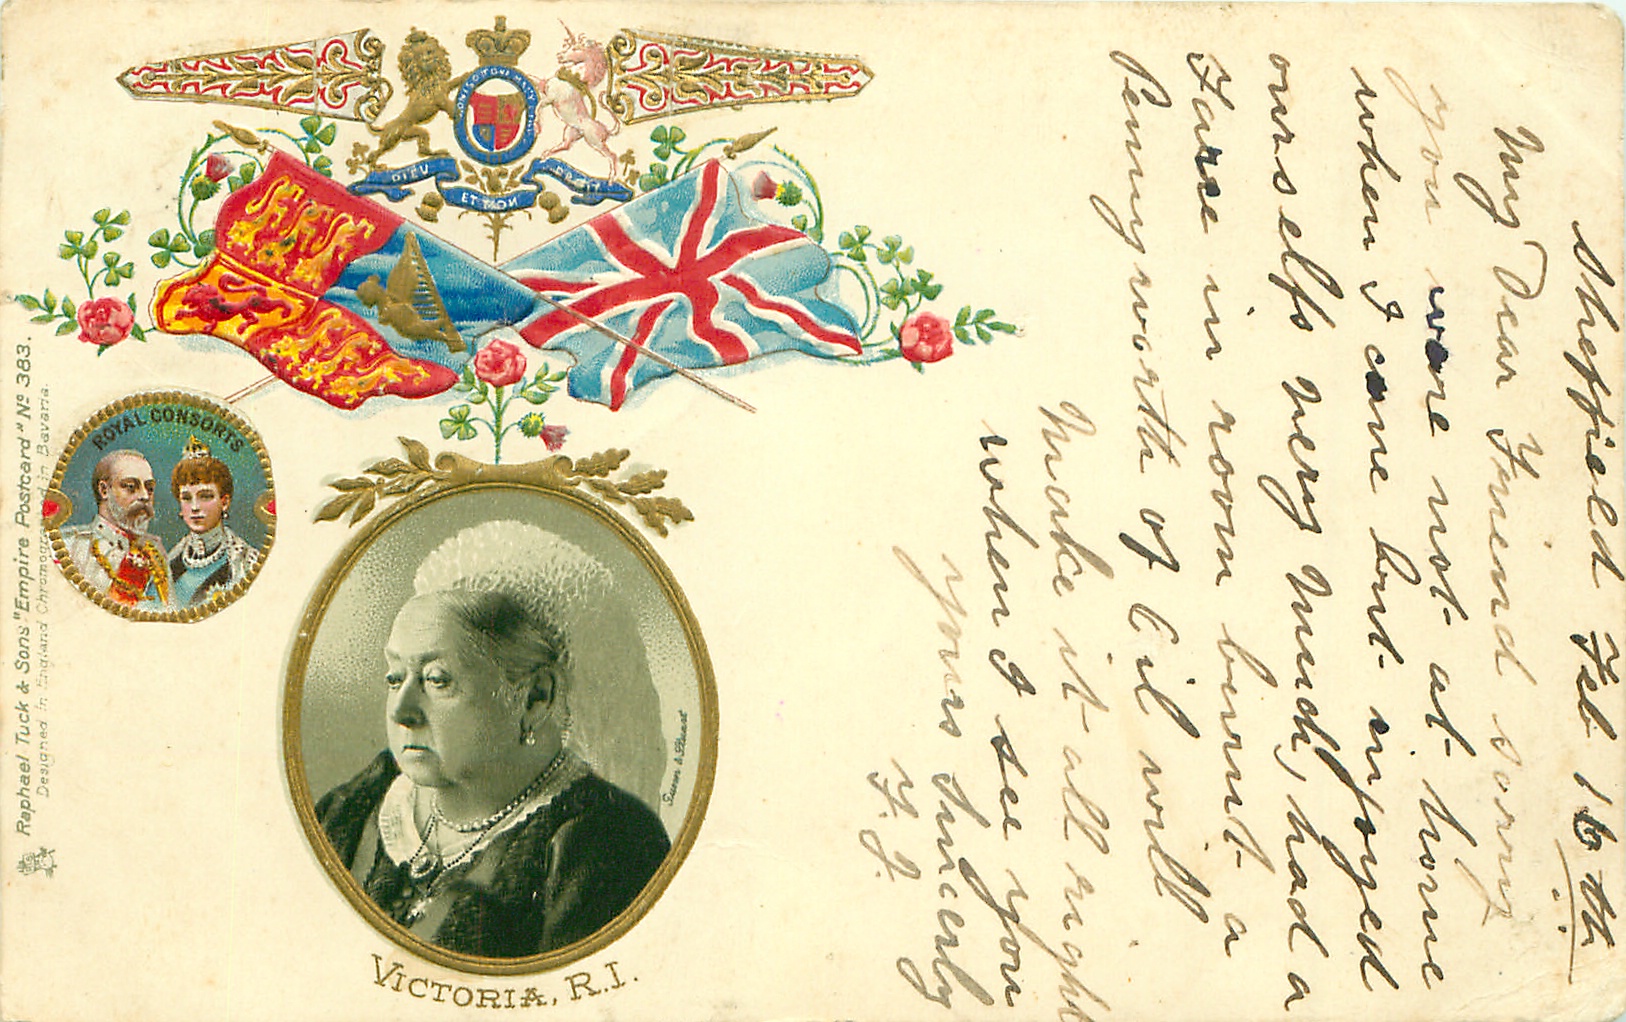 HONI SOIT QUI MAL Y PENSE
DIEU ET MON DROIT
ROYAL CONSORTS
Raphael Tuck & Sons "Empire Postcard" Nº 383.
Designed in England Chromographed in Bavaria.
VICTORIA, R.I.
Sheffield Feb 16th
My Dear Friend sorry
you were not at home
when I came but injoyed
ourselfs very Much, had a
Farse in room burnt a
Pennyworth of Oil will
Make it all right
when I see you
yours Sincerly
F. J.